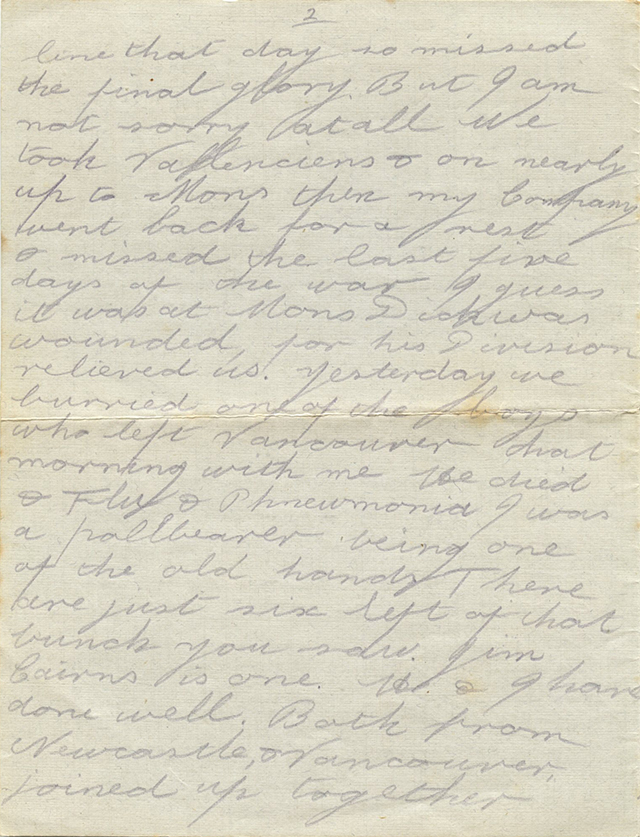 2
line that day so missed
the final glory. But I am
not sorry at all We
took Vallenciens & on nearly
up to Mons then my Company
went back for a rest
& missed the last five
days of the war I guess
it was at Mons Dick was
wounded, for his Division
relieved us. Yesterday we
burried one of the boys
who left Vancouver that
morning with me He died
& Flu & Phnewmonia I was
a pallbearer being one
of the old hands There
are just six left of that
bunch you saw. Jim
Cairns is one. He & I have
done well. Both from
Newcastle, & Vancouver,
joined up together